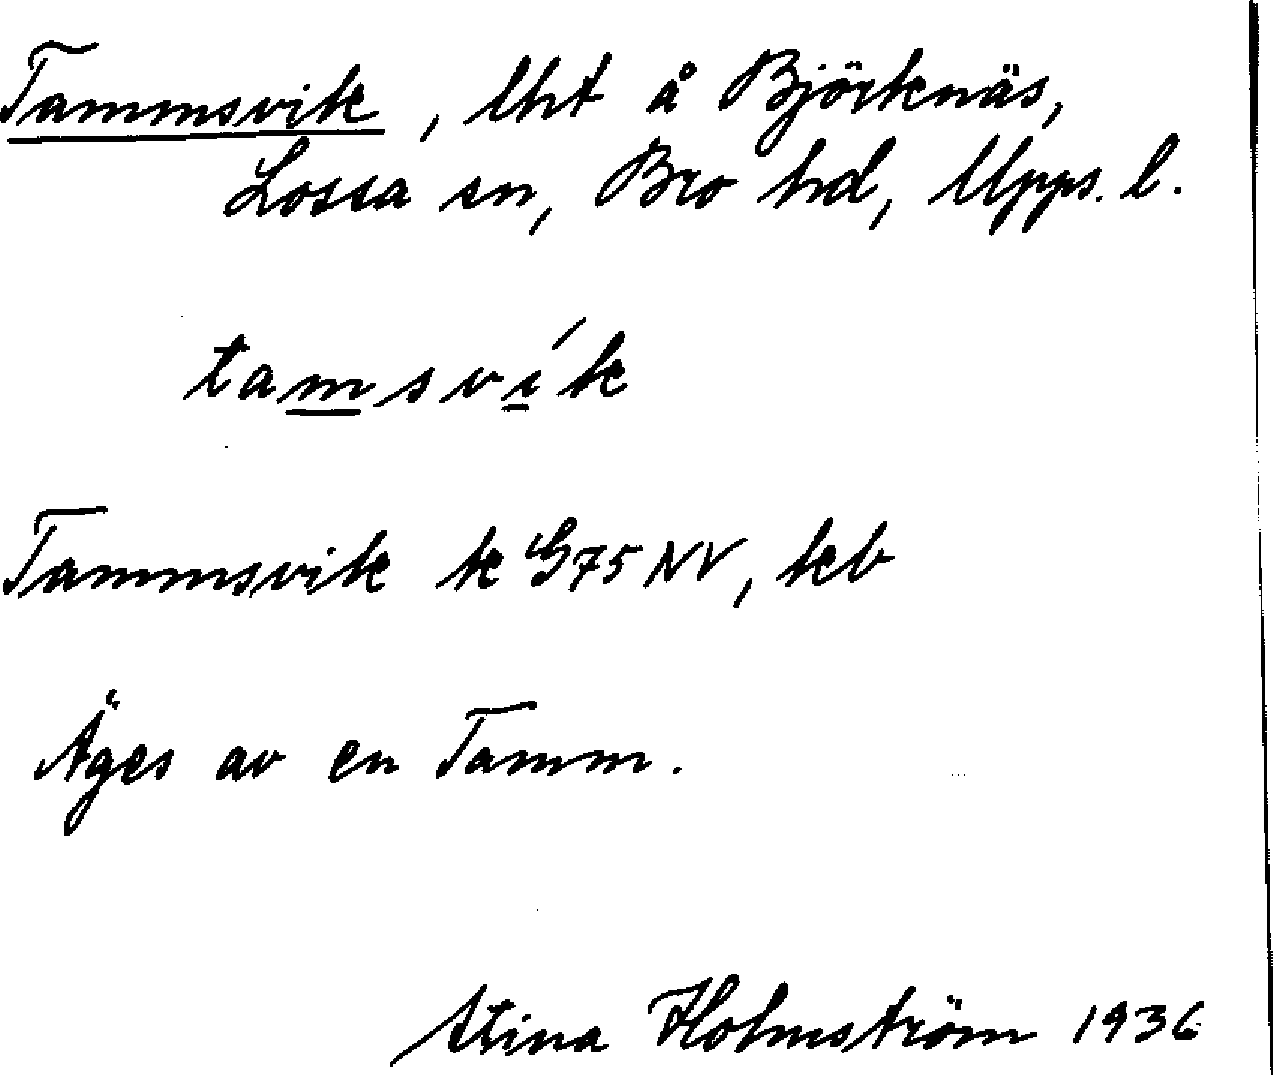 Tammsvik, lht å Björknäs,
Lossa sn, Bro hd, Upps. l.
tamsvík
Tammsvik k G75NV, kb
Äges av en Tamm.
Stina Holmström 1936